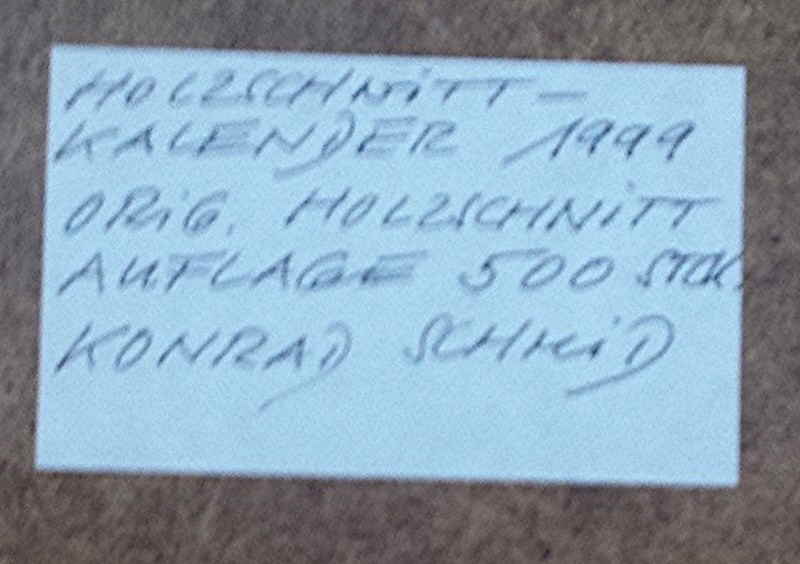 HOLZSCHNiTT-
KALENDER 1999
ORiG. HOLZSCHNiTT
AUFLAGE 500 STCK.
KONRAD SCHMiD